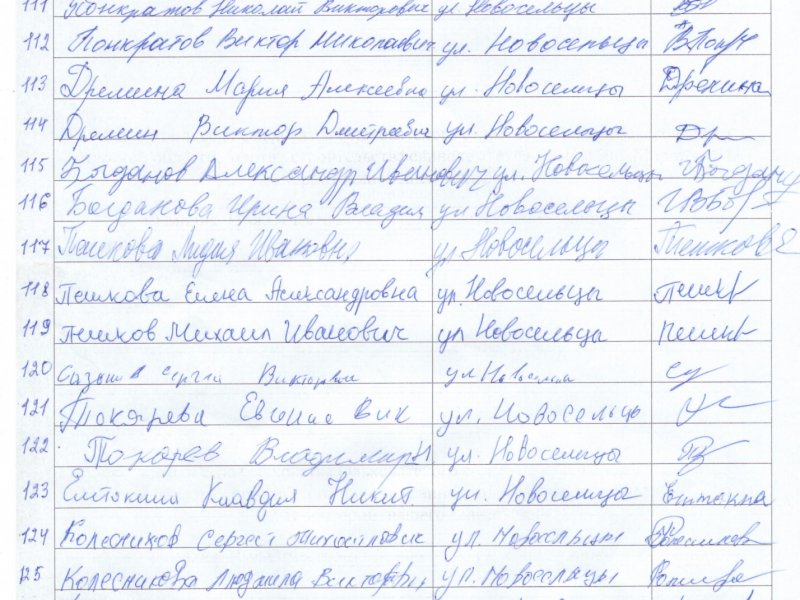 111 Понкратов Николай Викторович ул Новосельцы
112 Понкратов Виктор Николаевич ул. Новосельцы
113 Дремина Мария Алексеевна ул. Новоселицы Дремина
114 Дремин Виктор Дмитриевич ул. Новосельцы Др
115 Богданов Александр Иванович ул. Новосельцы
116 Богданова Ирина Владим ул Новосельцы
117 Пешкова Лидия Ивановн ул Новосельцы Пешкова
118 Пешкова Елена Александровна ул. Новосельцы Пешк
119 Пешков Михаил Иванович ул Новосельцы Пешк
120 Сергей Викторович ул
121 Токарева Евгение Вик ул. Новосельцы
122 Владимир Н ул. Новоселицы
123 Клавдия Никит. ул. Новоселица
124 Колесников Сергей Михайлович ул. Новосельцы
125 Колесникова Людмила Виктор ул. Новоселцы